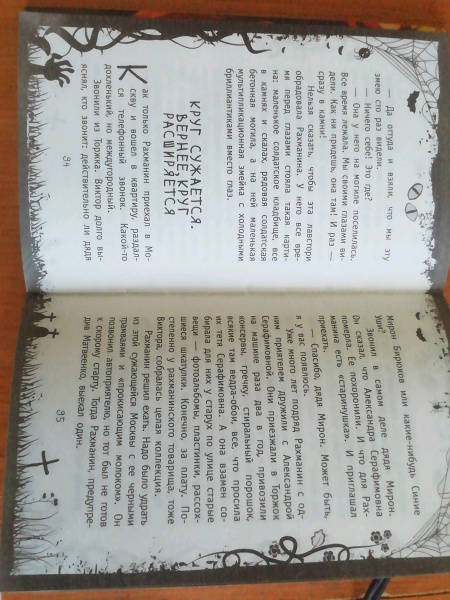 — Да откуда и взяли, что мы эту
змею сто раз видели.
— Ничего себе! Это где?
— Она у него на могиле поселилась.
Все время лежала. Мы своими глазами ви-
дели. Как ни придешь, она там! И раз —
сразу в камни!
Нельзя сказать, чтобы эта лавстори
обрадовала Рахманина. У него все вре-
мя перед глазами стояла такая карти-
на: маленькое солдатское кладбище, все
в камнях и скалах, рядовая солдатская
бетонная могила, а на ней маленькая
мультипликационная змейка с холодными
бриллиантиками вместо глаз.
КРУГ СУЖАЕТСЯ.
ВЕРНЕЕ, КРУГ
РАСШИРЯЕТСЯ
Как только Рахманин приехал в Мо-
скву и вошел в квартиру, раздал-
ся телефонный звонок. Какой-то
дохленький, но междугородный.
Звонили из Торжка. Виктор долго вы-
яснял, кто звонит: действительно ли дядя
84
Мирон Бирюков или какие-нибудь Синие
Уши?
Звонил в самом деле дядя Мирон.
Он сказал, что Александра Серафимовна
померла. Ее похоронили. И что для Рах-
манина есть «старинушка». И приглашал
приехать.
— Спасибо, дядя Мирон. Может быть,
я у вас появлюсь.
Уже много лет подряд Рахманин с од-
ним приятелем дружили с Александрой
Серафимовной. Они приезжали в Торжок
на машине раза два в год, привозили
консервы, гречку, стиральный порошок,
всякие там ведра-обои, все, что просила
их тетя Серафимовна. А она взамен со-
бирала для них у старух по улице старые
вещи — фотоальбомы, пластинки, рассох-
шиеся шкатулки. Конечно, за плату. По-
степенно у рахманинского товарища, тоже
Виктора, собралась целая коллекция.
Рахманин решил ехать. Надо было удрать
из этой сужающейся Москвы с ее черными
трамваями и «прокисающим молоком». Он
позвонил автоприятелю, но тот был не готов
к скорому старту. Тогда Рахманин, предупре-
див Матвеенко, выехал один.
85